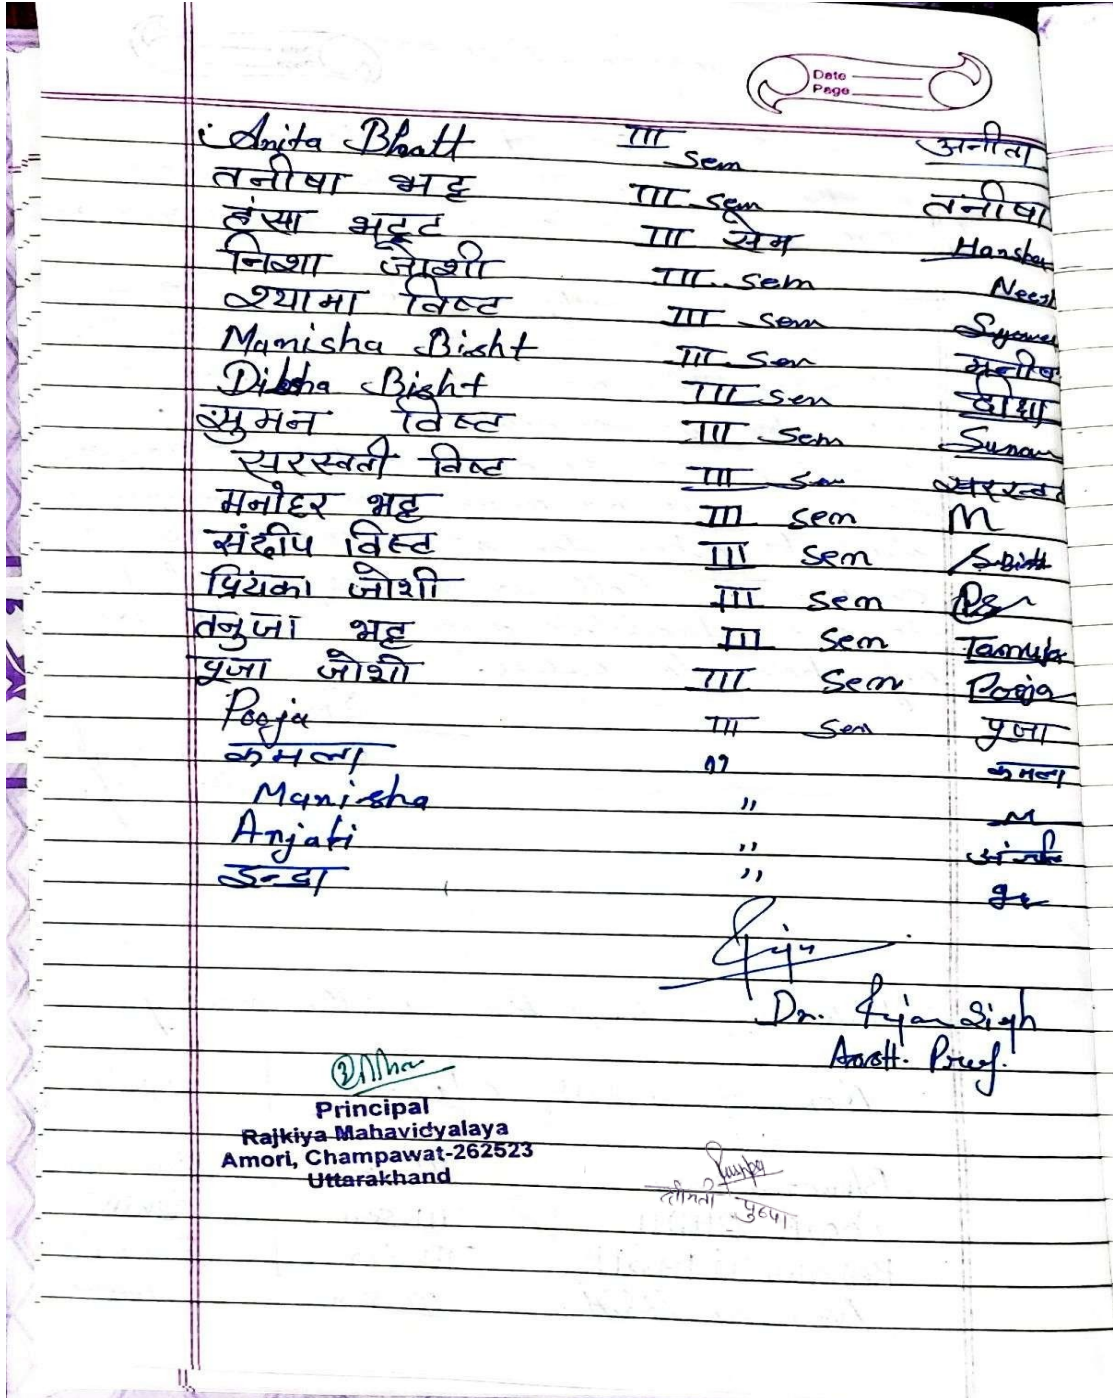 Date
Page
Anita Bhatt III sem अनीता
तनीषा भट्ट III sem तनीषा
हंसा भट्ट III सेम Hansha
निशा जोशी III sem
श्यामा विष्ट III sem
Manisha Bisht III Sem
Diksha Bisht III Sem
सुमन विष्ट III Sem Suman
सरस्वती विष्ट III Sem
मनोहर भट्ट III sem M
संदीप विष्ट III Sem
प्रियंका जोशी III sem
तनुजा भट्ट III Sem Tanuja
पूजा जोशी III Sem Pooja
Pooja III Sem पूजा
कमला " कमला
Manisha " M
Anjali "
इन्द्रा "
Dr. Singh
Asstt. Prof.
Principal
Rajkiya Mahavidyalaya
Amori, Champawat-262523
Uttarakhand
Puspa
श्रीमती पुष्पा